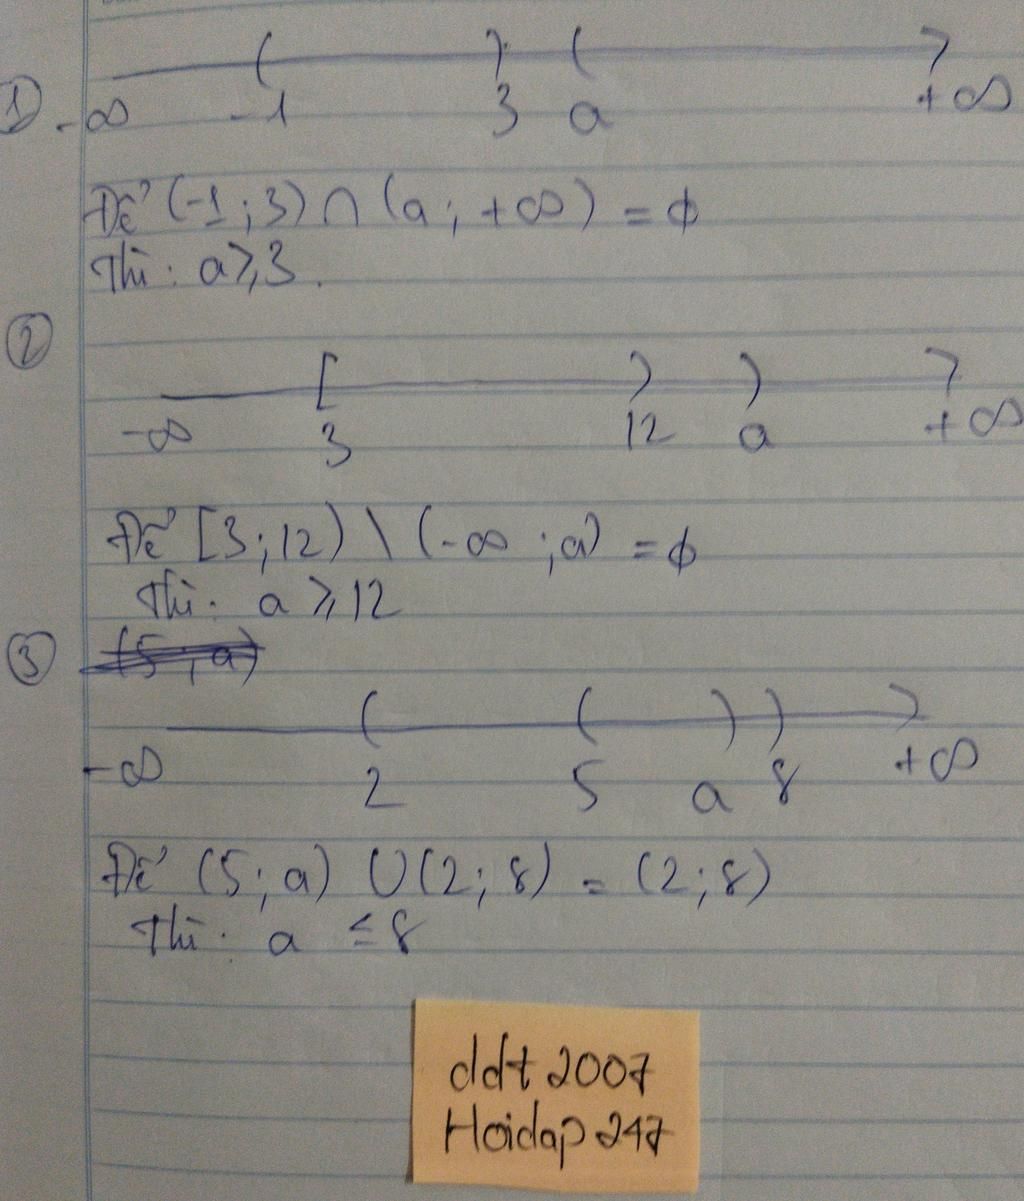 1)
-∞ -1 3 a +∞
Để (-1; 3) ∩ (a; +∞) = ϕ
Thì: a ⩾ 3.
2
-∞ 3 12 a +∞
Để [3; 12) \ (-∞; a) = ϕ
Thì: a ⩾ 12
3 (5; a)
-∞ 2 5 a 8 +∞
Để (5; a) ∪ (2; 8) = (2; 8)
Thì: a ≤ 8
ddt 2007
Hoidap 247